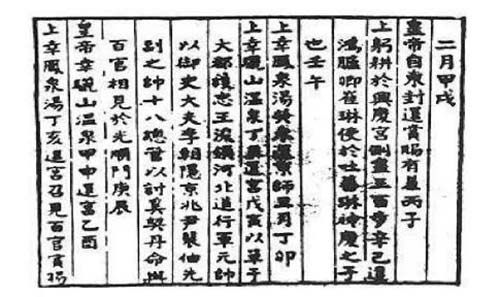 二月甲戌
皇帝自東封還賞賜有差丙子
上躬耕於興慶宮側盡三百步辛巳遣
鴻臚卿崔琳使於吐蕃琳神慶之子
也壬午
上幸鳳泉湯癸未還京師丑月丁卯
上幸驪山溫泉丁還宮戊寅以單于
大都護忠王浚領河北道行軍元帥
以御史大夫李朝隱京兆尹裴伷先
副之帥十八總管以討奚契丹命與
百官相見於光順門庚辰
皇帝幸驪山溫泉甲申還宮乙酉
上幸鳳泉湯丁亥還宮召見百官賞賜